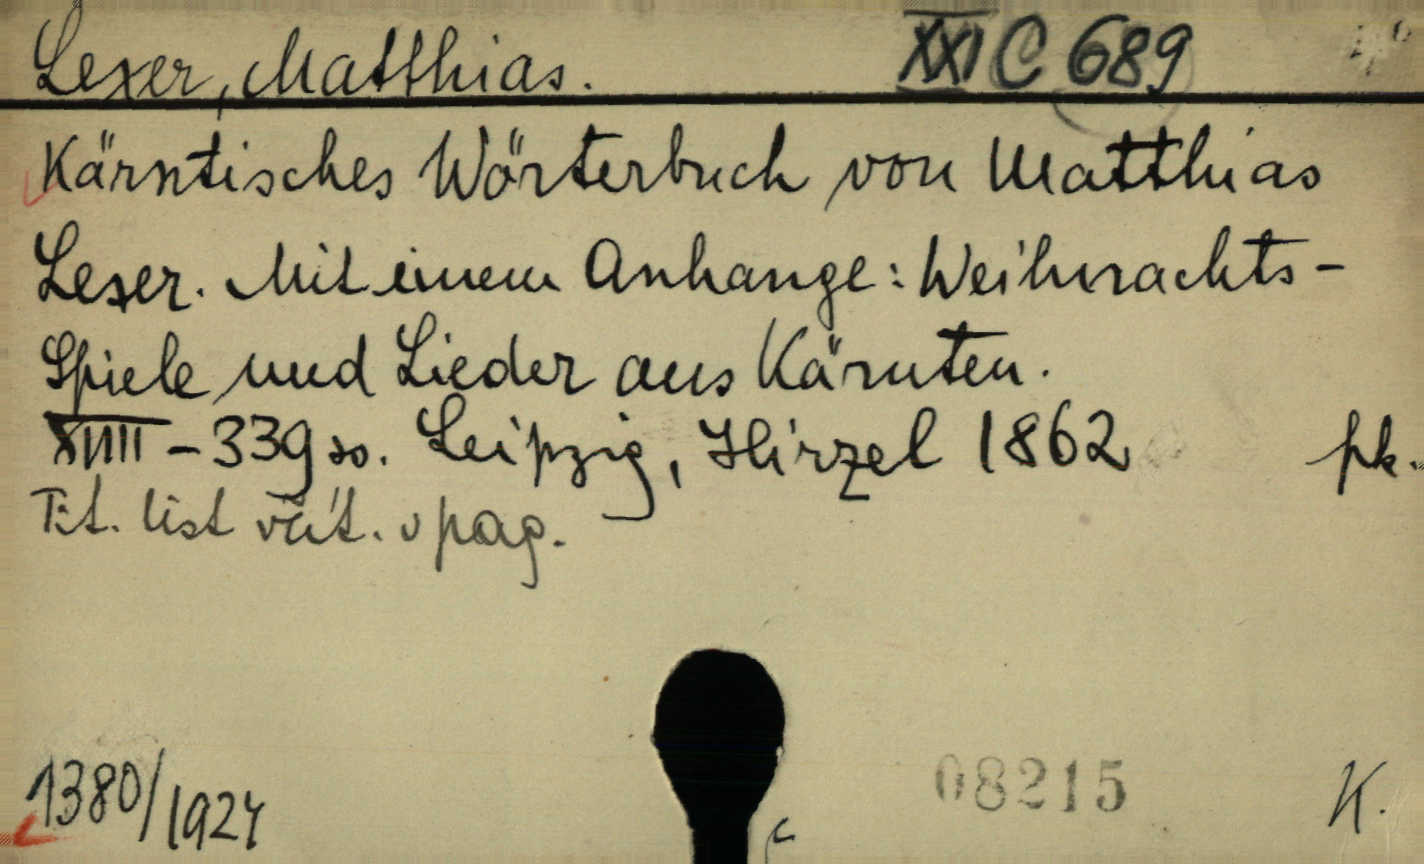 Lexer, Matthias. XXI C 689 4°
Kärntisches Wörterbuch von Matthias
Lexer. Mit einem Anhange: Weihnachts-
Spiele und Lieder aus Kärnten.
XVIII - 339 so. Leipzig, Hirzel 1862 pk.
Tit. list
pag.
1380/1924
08215 K.